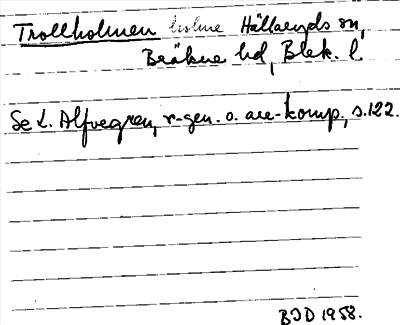 Trollholmen holme Hällaryds sn,
Bräkne hd, Blek. l.
Se L. Alfvegren, r-gen. o. are-komp., s.122.
BJD 1958.